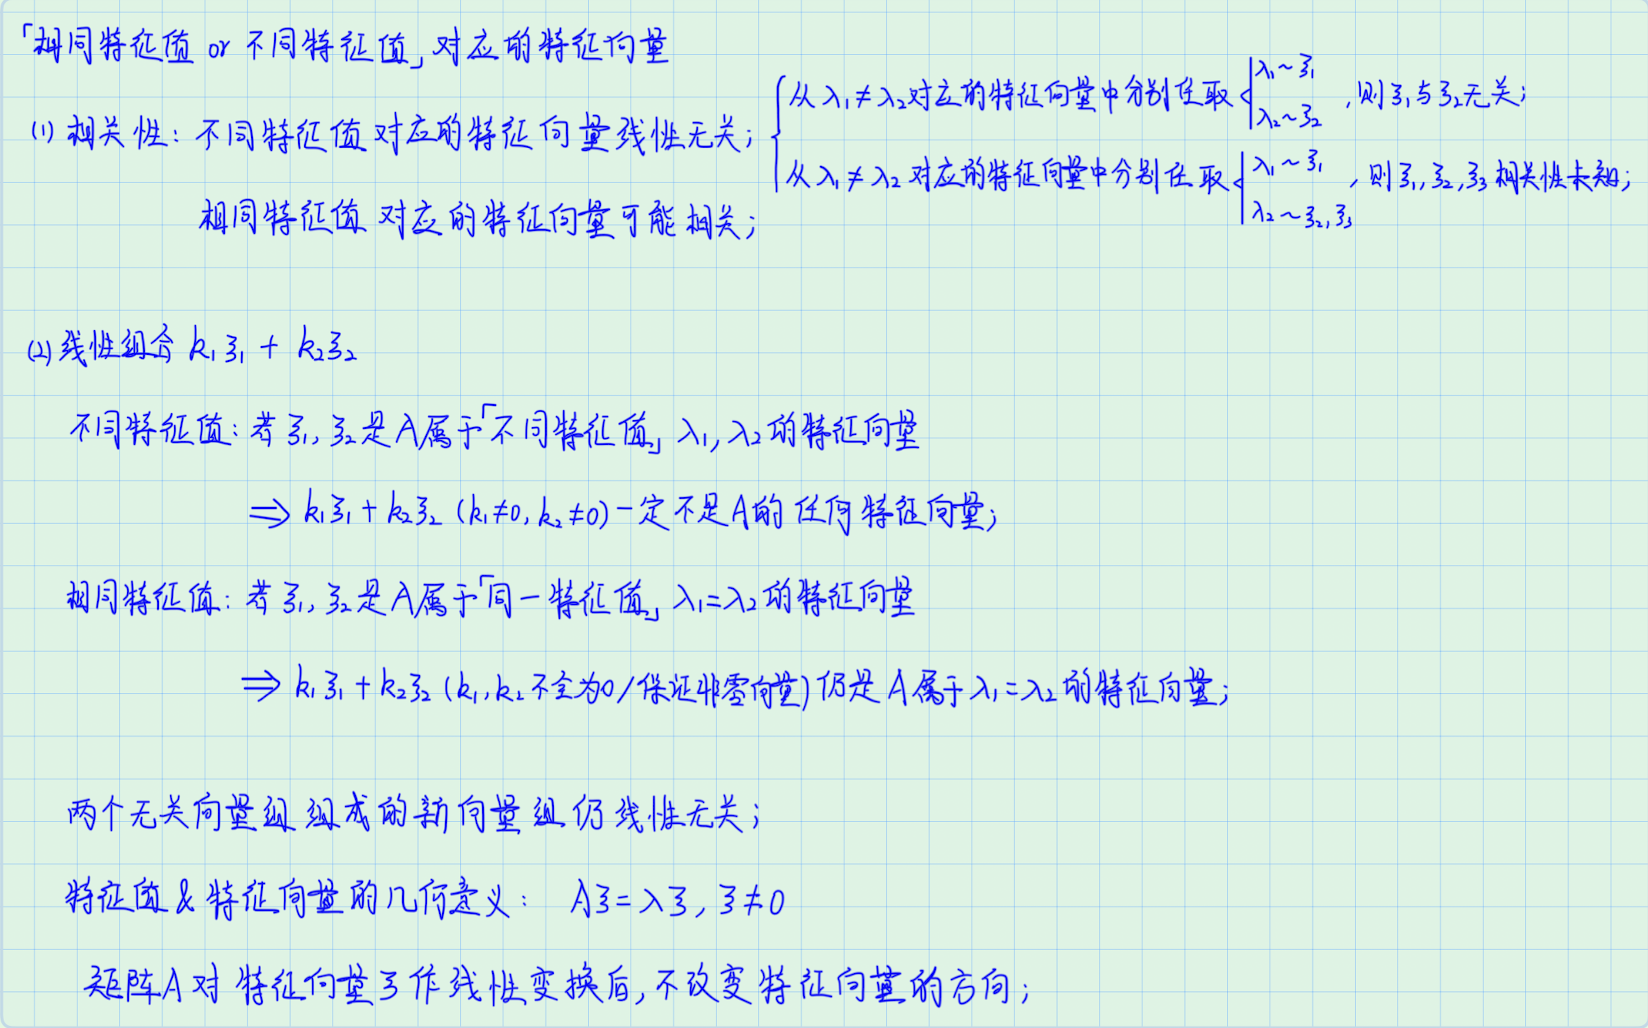 「相同特征值 or 不同特征值」对应的特征向量
(1) 相关性: 不同特征值对应的特征向量线性无关;
相同特征值对应的特征向量可能相关;
从λ₁≠λ₂对应的特征向量中分别任取 λ₁~ξ₁ λ₂~ξ₂ ,则ξ₁与ξ₂无关;
从λ₁≠λ₂对应的特征向量中分别任取 λ₁~ξ₁ λ₂~ξ₂,ξ₃ ,则ξ₁,ξ₂,ξ₃相关性未知;
(2) 线性组合 k₁ξ₁ + k₂ξ₂
不同特征值: 若ξ₁,ξ₂是A属于「不同特征值」λ₁,λ₂的特征向量
⇒ k₁ξ₁ + k₂ξ₂ (k₁≠0,k₂≠0)一定不是A的任何特征向量;
相同特征值: 若ξ₁,ξ₂是A属于「同一特征值」λ₁=λ₂的特征向量
⇒ k₁ξ₁ + k₂ξ₂ (k₁,k₂不全为0/保证非零向量)仍是A属于λ₁=λ₂的特征向量;
两个无关向量组组成的新向量组仍线性无关;
特征值&特征向量的几何意义: Aξ=λξ, ξ≠0
矩阵A对特征向量ξ作线性变换后,不改变特征向量的方向;